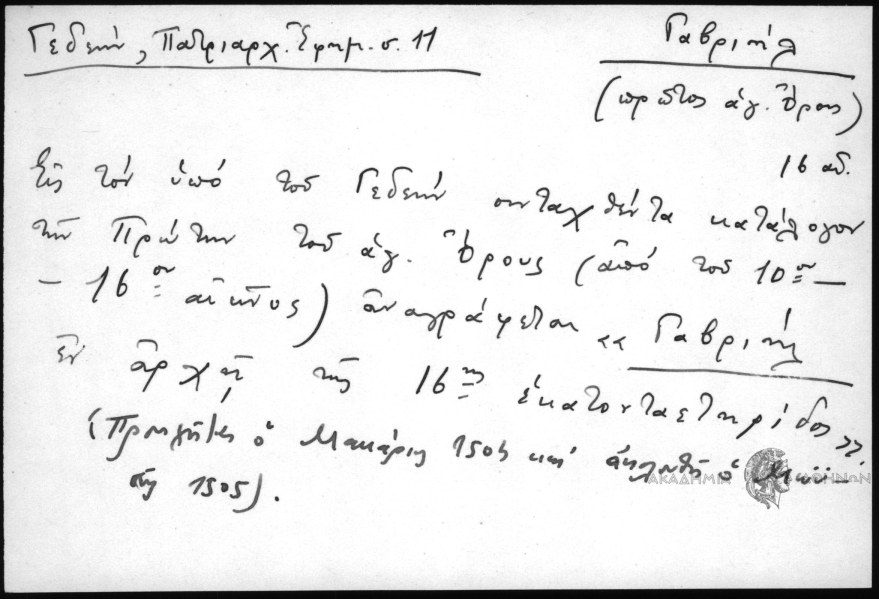 Γεδεών, Πατριαρχ. Ἐφημ. σ. 11
Γαβριήλ
(πρῶτος ἁγ. Ὄρους)
16 αἰ.
Εἰς τόν ὑπό τοῦ Γεδεών συνταχθέντα κατάλογον
τῶν Πρώτων τοῦ ἁγ. Ὄρους (ἀπό τοῦ 10ου —
— 16ου αἰῶνος) ἀναγράφεται «Γαβριήλ
ἐν ἀρχῇ τῆς 16ης ἑκατονταετηρίδος».
(Προηγεῖται ὁ Μακάριος 1505 καί ἀκολουθεῖ ὁ
τῆς 1505).
ΑΚΑΔΗΜΙΑ ΑΘΗΝΩΝ